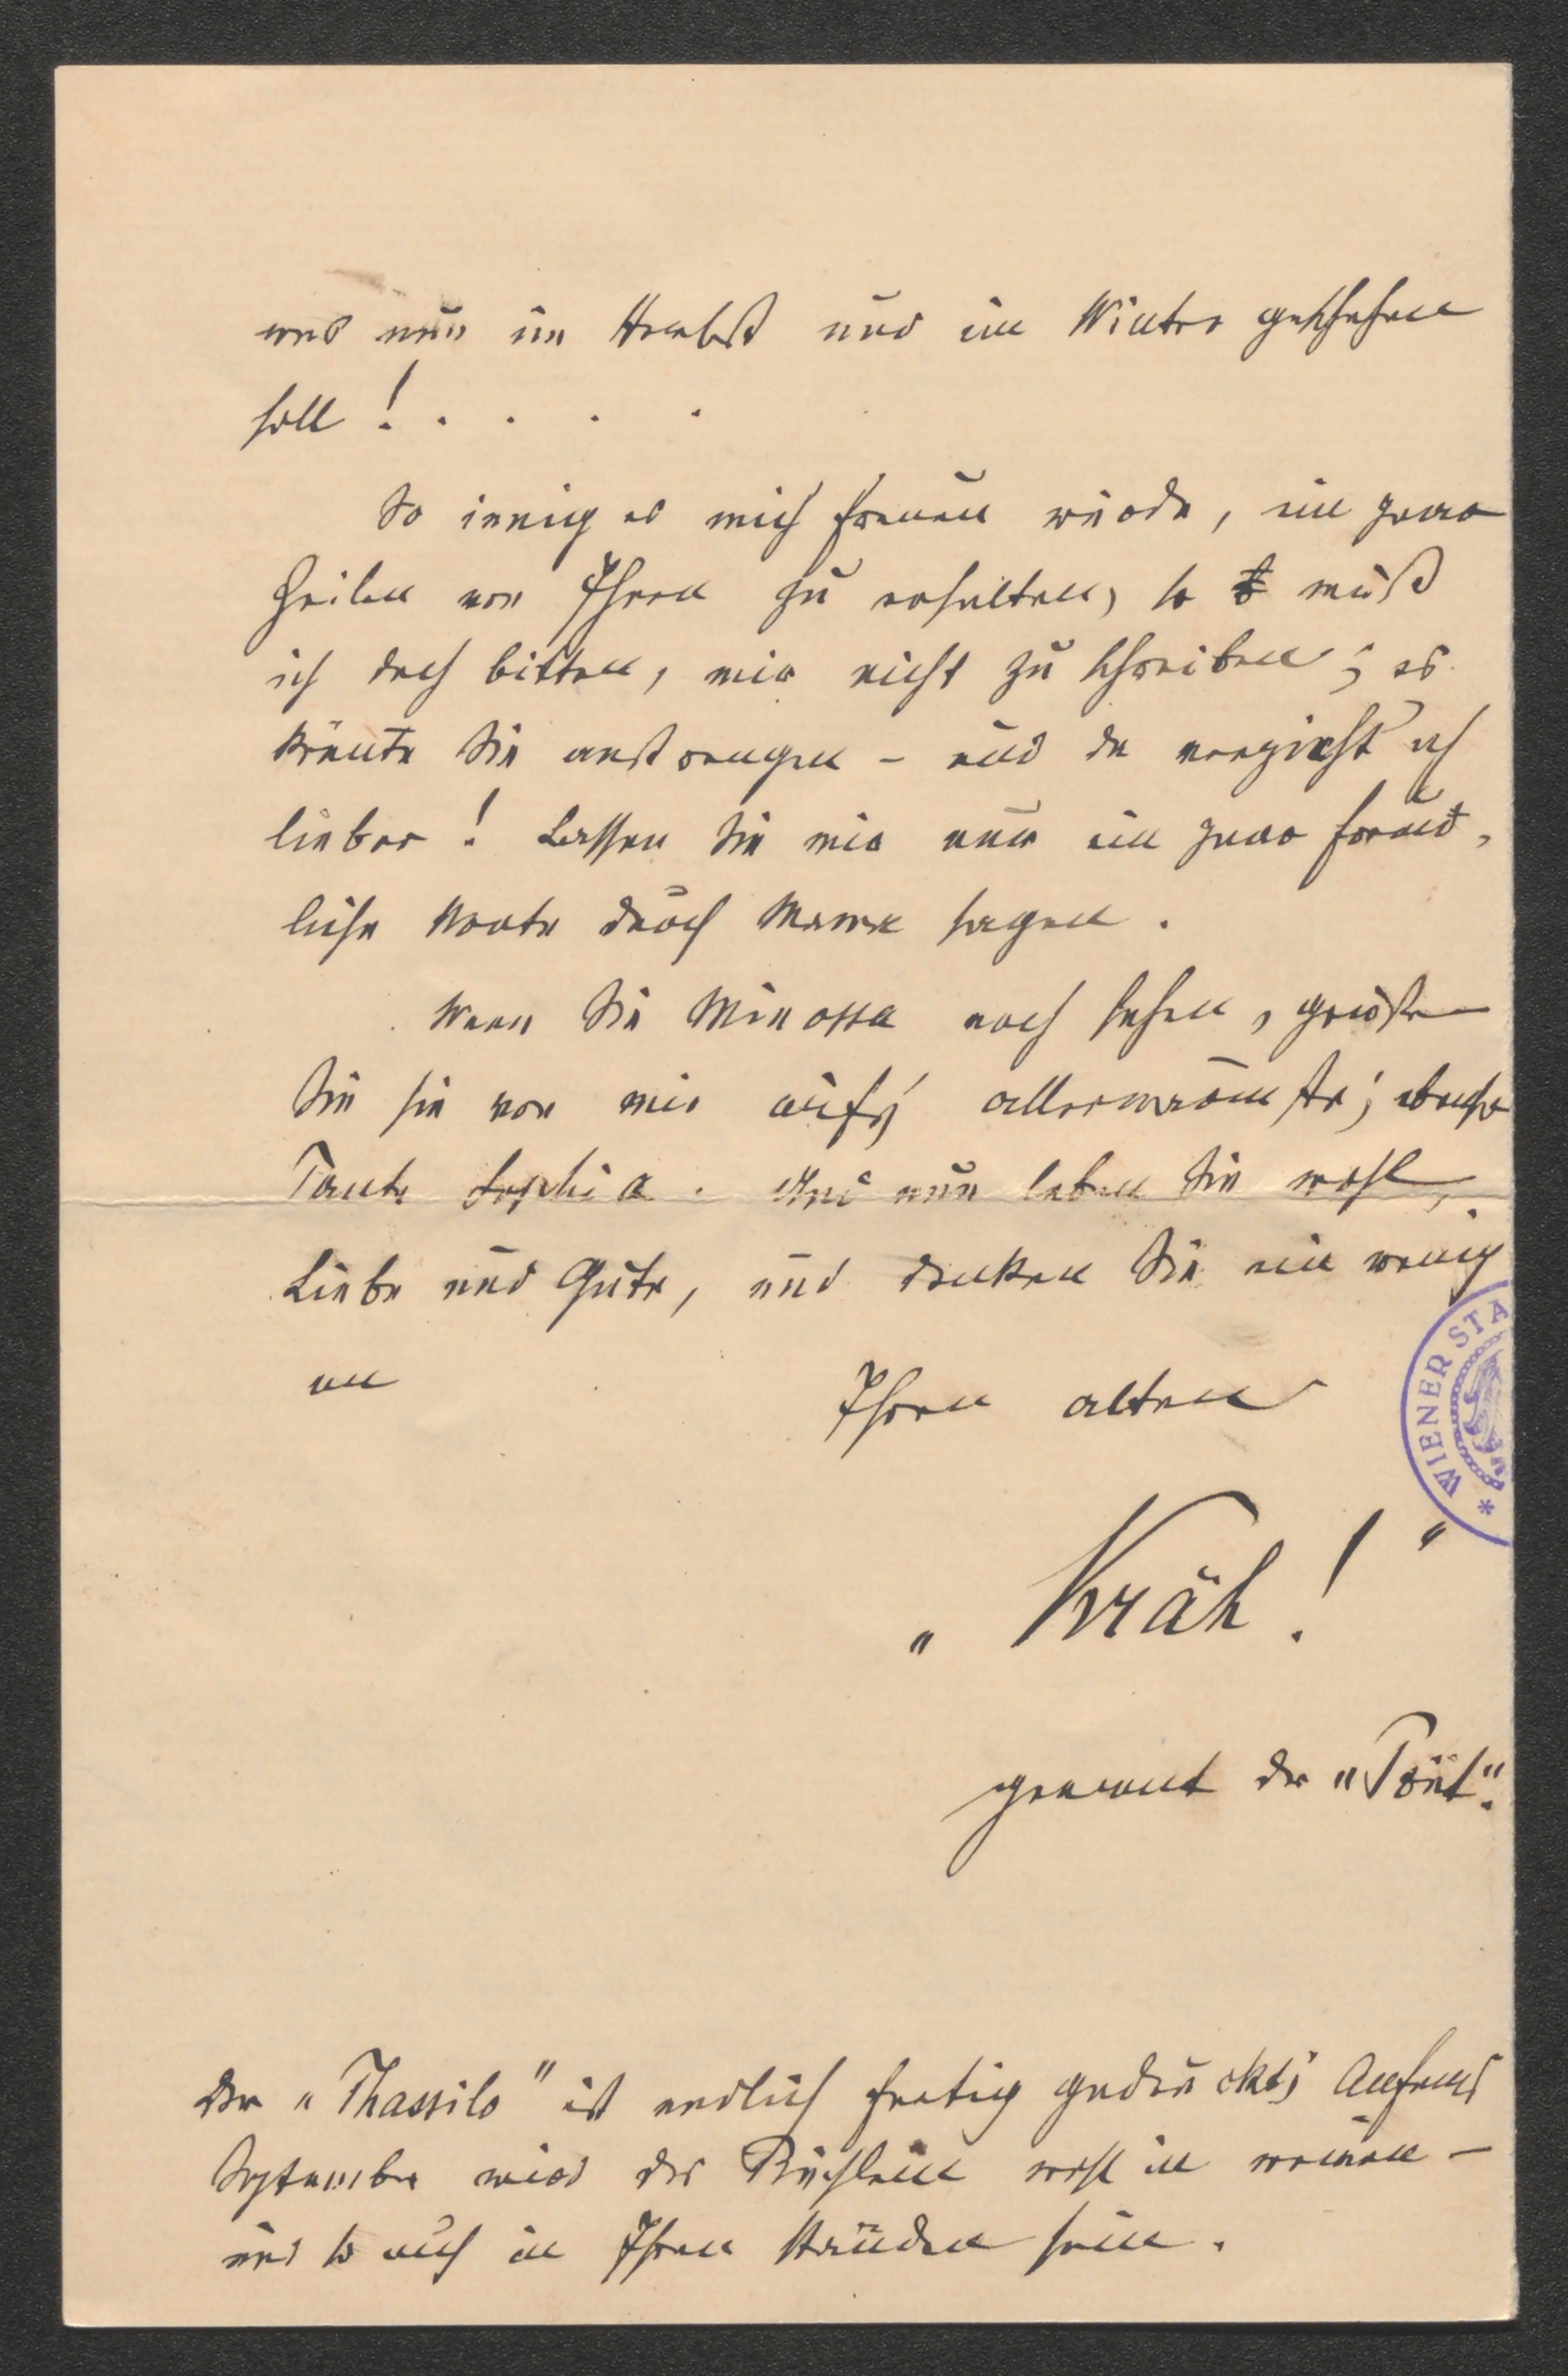 was nun im Herbst und im Winter geschehen
soll! . . . .
So innig es mich freuen würde, ein paar
Zeilen von Ihnen zu erhalten, so muß
ich doch bitten, mir nicht zu schreiben; es
könnte Sie anstrengen – und da verzicht' ich
lieber! Lassen Sie mir nur ein paar freund-
liche Worte durch Mama sagen.
Wenn Sie noch sehen, grüßen
Sie sie von mir auf's allerwärmste; ebenso
Tante Sophie. Und nun leben Sie wohl,
Liebe und Gute, und denken Sie ein wenig
an Ihren alten
WIENER STA
„Kräh!"
genannt der "Poët".
Der „Thassilo" ist endlich fertig gedruckt; Anfangs
September wird das Büchlein wohl in meinen –
und so auch in Ihren Händen sein.